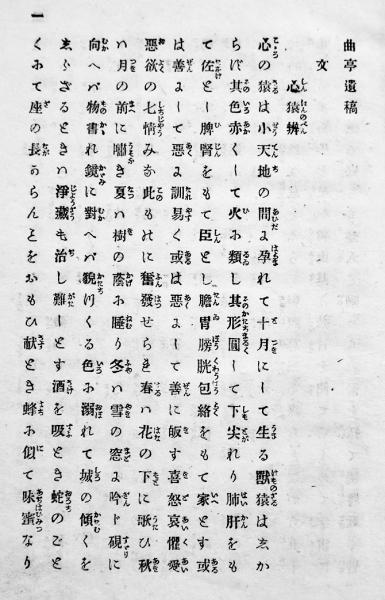 曲亭遺稿
文
心猿辨
心の猿は小天地の間よ孕れて十月にして生る獸猿はゑか
らに其色赤くして火お類し其形圓して下尖れり肺肝をも
て佐とし脾腎をもて臣とし膽胃膀胱包絡をもて家とす或
は善よして悪よ訓易く或は悪よして善に皈す喜怒哀懼愛
悪欲の七情みな此ものに奮發せらき春ハ花の下に歌ひ秋
ハ月の前に嘯き夏ハ樹の蔭お睡り冬ハ雪の窓よ吟ト硯に
向へバ物書れ鏡に對へバ貌けくる色お溺れて城の傾くを
ゑらざるときハ淨藏も治し難しとす酒を吸とき蛇のごと
くふて座の長からんとをおもひ献とき蜂お似て味蜜なり
一